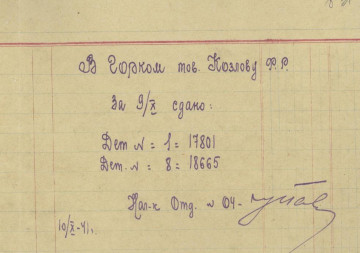 В Горком тов. Козлову Ф.Р.
За 9/X сдано:
Дет N = 1 = 17801
Дет. N = 8 = 18665
Нач-к Отд. N 04-
10/X-41г.